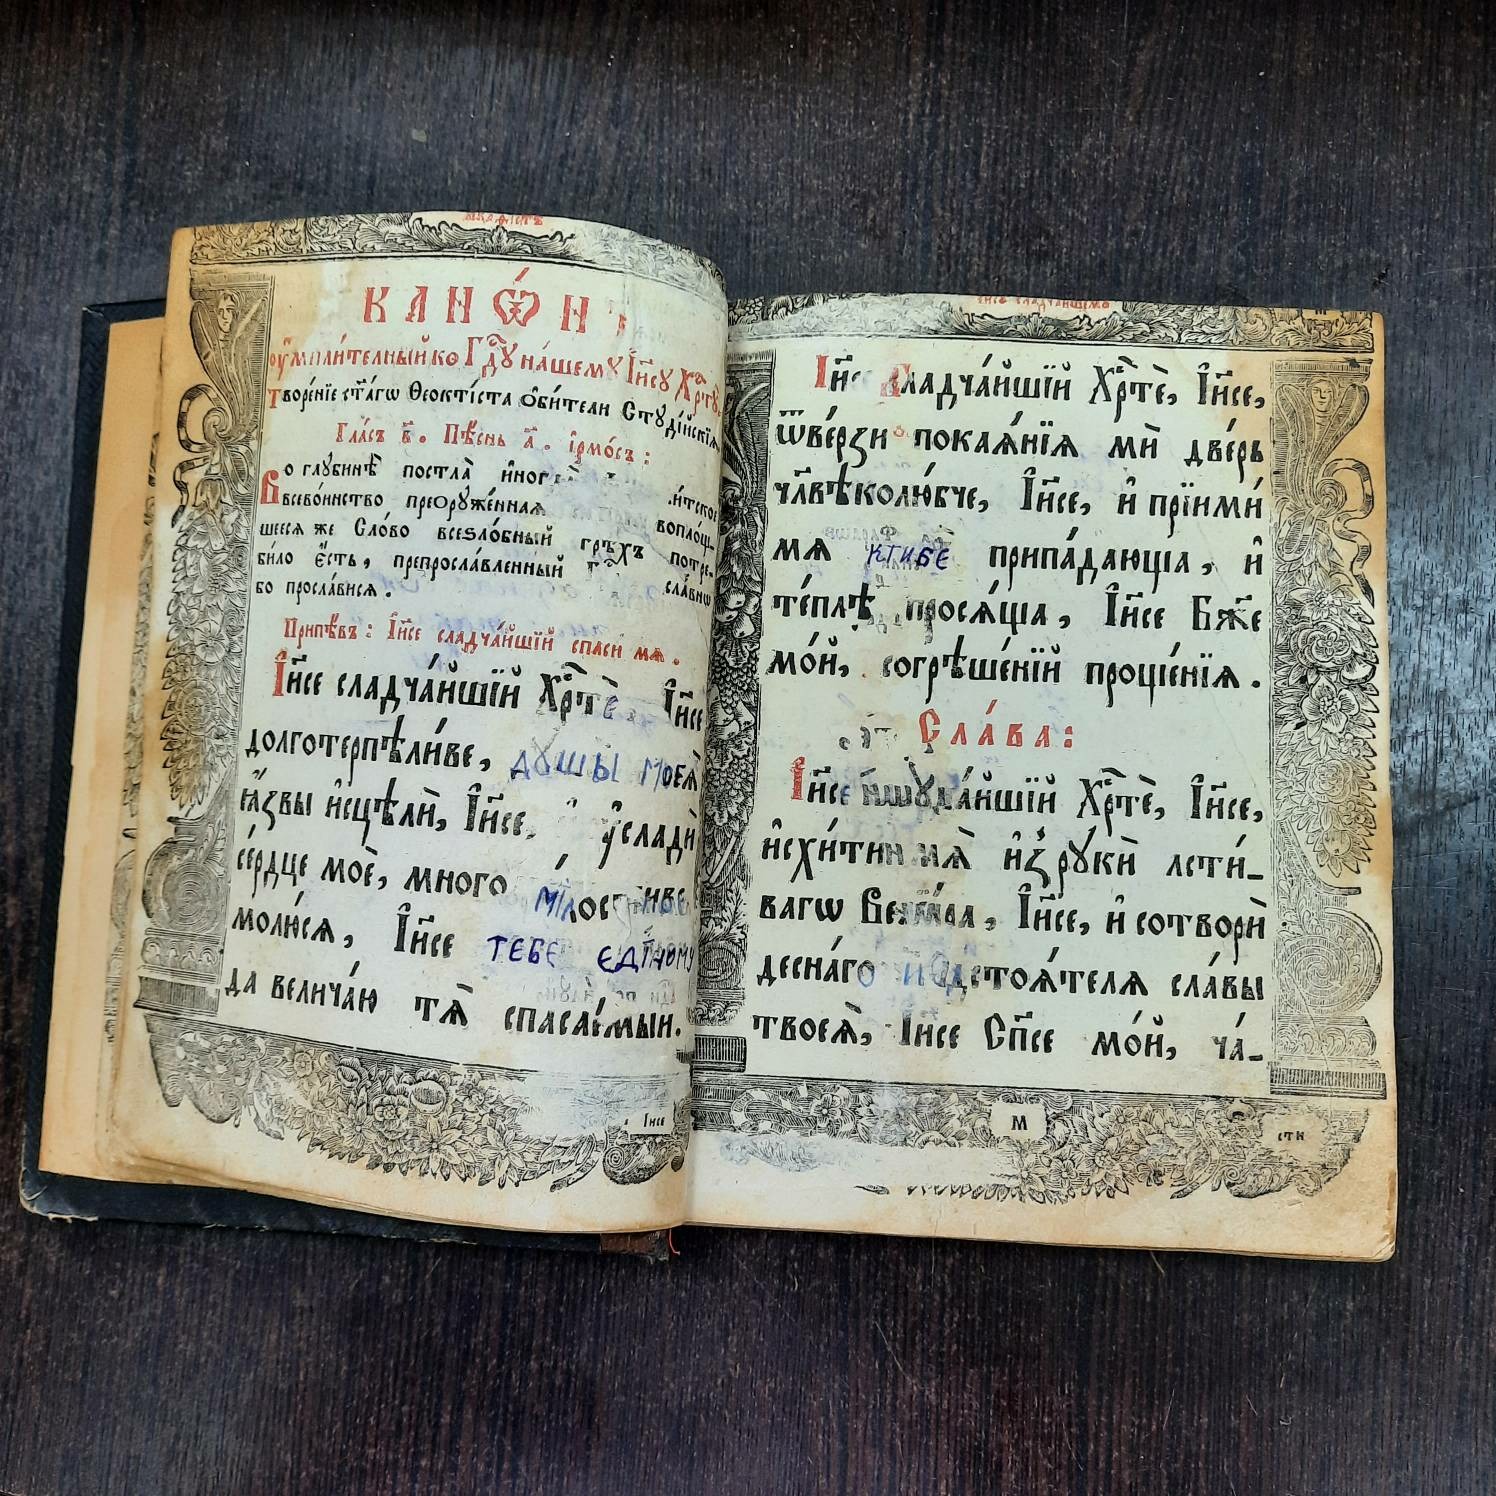 АКАФІСТЪ
КАНѠ́НЪ
оу҆мили́тельный ко Гдⷭ҇у на́шему І҆и҃су Хрⷭ҇ту̀.
Творе́нїе ст҃а́гѡ Ѳеокті́ста Ѻ҆би́тели Студі́йскїѧ
Гла́съ в҃. Пѣ́снь а҃. і҆рмо́съ:
Во глꙋбинѣ̀ постла̀ и҆ногдà
всево́инство преѻрꙋже́нная воплощ-
шееся же Сло́во всеѕло́бный грѣ́хъ потре-
би́ло є҆́сть, препросла́вленный сла́внѡ
бо просла́висѧ.
Припѣ́въ: І҆и҃се сладча́йшїй спаси́ мѧ.
І҆и҃се сладча́йшїй Хрⷭ҇тѐ, І҆и҃се
долготерпѣли́ве, дꙋшы̀ моеѧ̀
ꙗ҆́звы и҆сцѣлѝ, І҆и҃се, ᲂу҆сладѝ
се́рдце моѐ, много млⷭ҇тиве
молю́сѧ, І҆и҃се тебе є҆диному
да велича́ю тѧ̀ спаса́емый.
І҆и҃се
І҆и҃се сладча́йшемꙋ
І҆и҃се сладча́йшїй Хрⷭ҇тѐ, І҆и҃се,
ѿве́рзи покаѧ́нїѧ мѝ две́рь
чл҃вѣколю́бче, І҆и҃се, и҆ прїимѝ
мѧ ктибе припа́дающа, и҆
те́плѣ просѧ́ща, І҆и҃се Бж҃е
мо́й, согрѣше́нїй проще́нїѧ.
Сла́ва:
І҆и҃се сладча́йшїй Хрⷭ҇тѐ, І҆и҃се,
и҆схи́тин мѧ̀ и҆з̾ рꙋкѝ лести́-
вагѡ Велїа́ра, І҆и҃се, и҆ сотворѝ
десна́го предстоѧ́телѧ сла́вы
твоеѧ̀, І҆и҃се Сп҃се мо́й, ча́-
М
сти